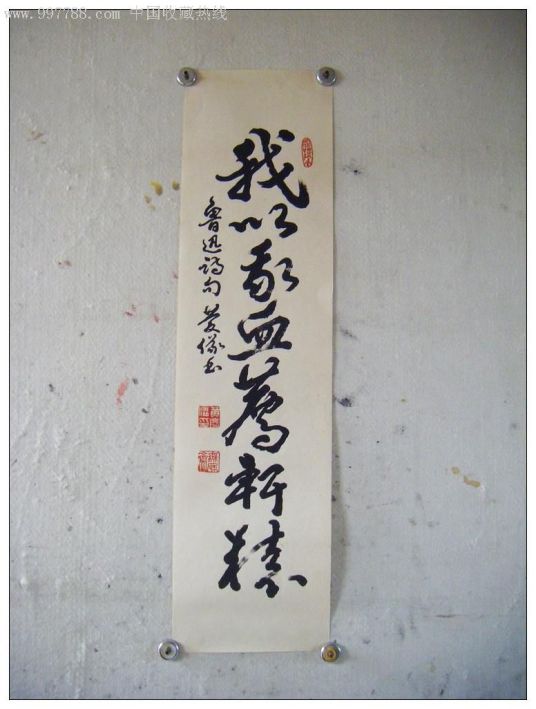 www.997788.com 中国收藏热线
我以我血薦軒轅
魯迅詩句